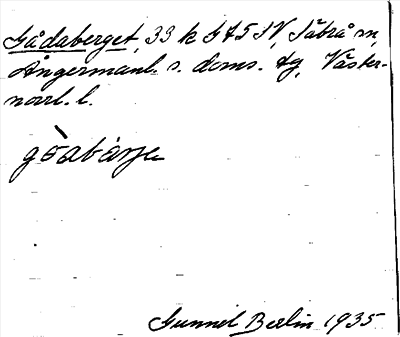 Gådaberget, 33 k G 75 SV, Säbrå sn,
Ångermanl. s. doms. tg, Väster-
norrl. l.
gòabàrje
Gunnel Berlin 1935